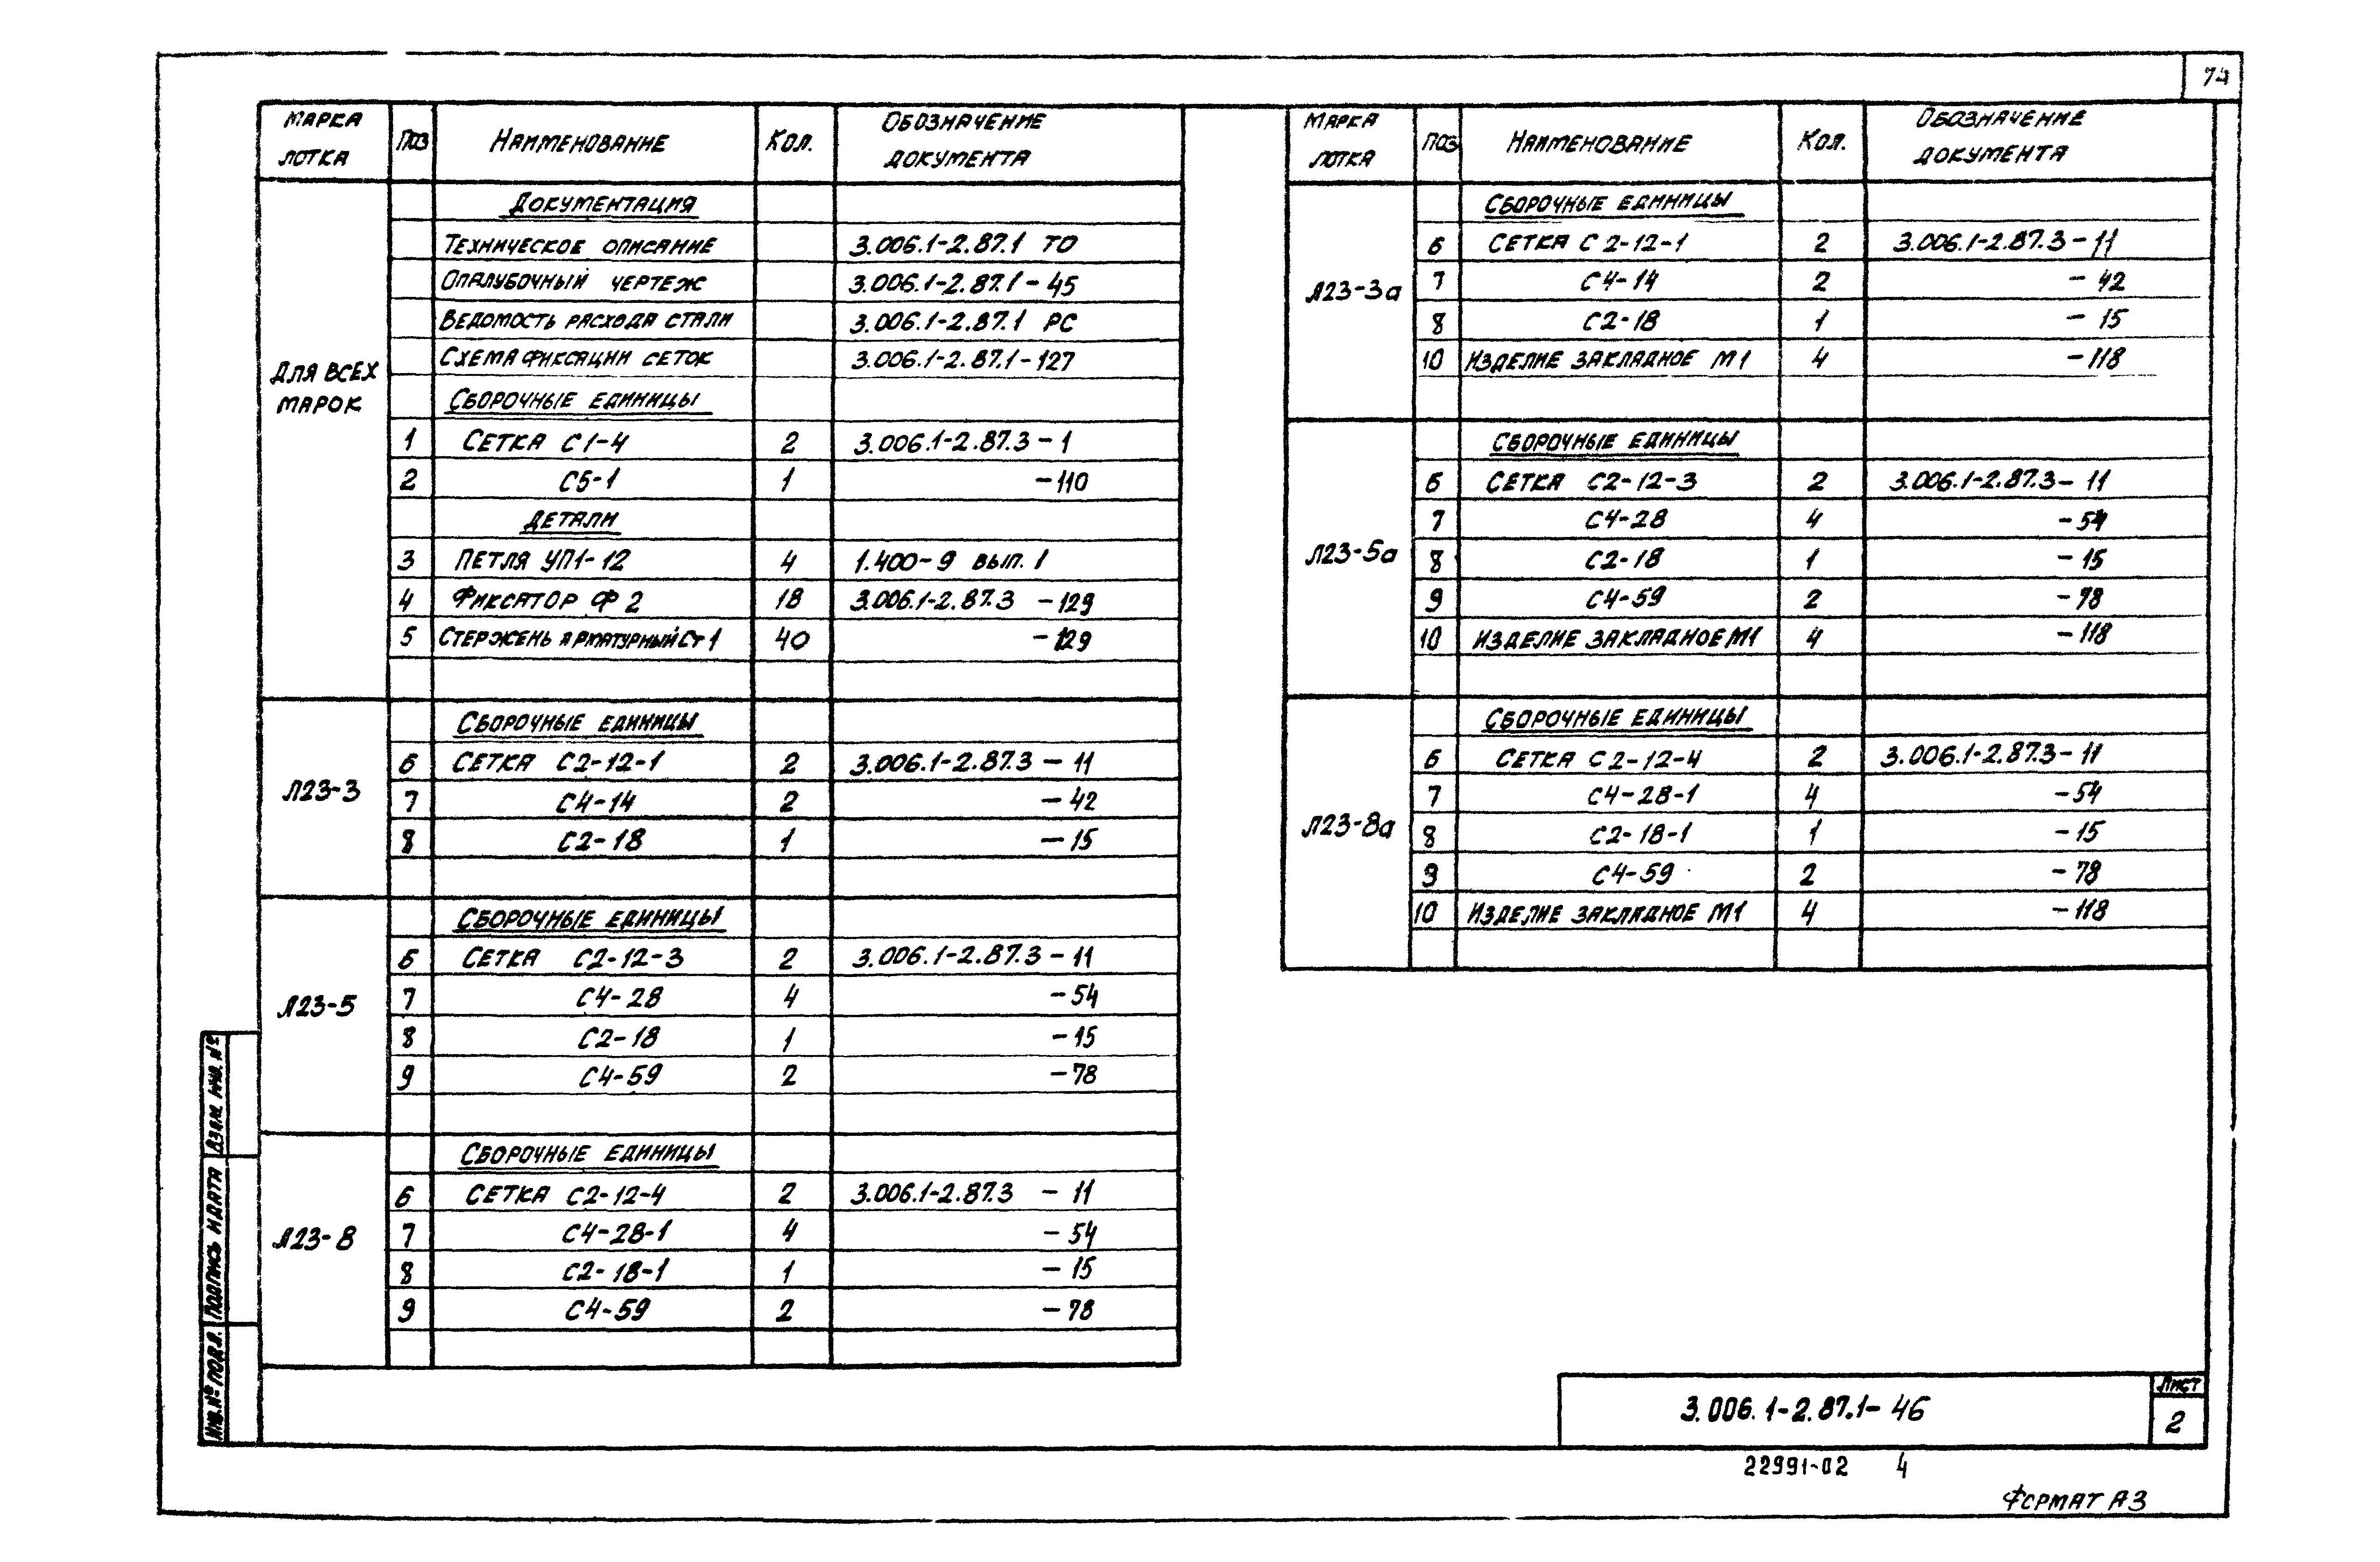 74
Марка лотка Поз Наименование Кол. Обозначение документа
Для всех марок
Документация
Техническое описание 3.006.1-2.87.1 ТО
Опалубочный чертеж 3.006.1-2.87.1-45
Ведомость расхода стали 3.006.1-2.87.1 РС
Схема фиксации сеток 3.006.1-2.87.1-127
Сборочные единицы
1 Сетка С1-4 2 3.006.1-2.87.3-1
2 С5-1 1 -110
Детали
3 Петля УП1-12 4 1.400-9 вып. 1
4 Фиксатор Ф2 18 3.006.1-2.87.3 -129
5 Стержень арматурный Ст1 40 -129
Л23-3
Сборочные единицы
6 Сетка С2-12-1 2 3.006.1-2.87.3-11
7 С4-14 2 -42
8 С2-18 1 -15
Л23-5
Сборочные единицы
6 Сетка С2-12-3 2 3.006.1-2.87.3-11
7 С4-28 4 -54
8 С2-18 1 -15
9 С4-59 2 -78
Л23-8
Сборочные единицы
6 Сетка С2-12-4 2 3.006.1-2.87.3 -11
7 С4-28-1 4 -54
8 С2-18-1 1 -15
9 С4-59 2 -78
Марка лотка Поз Наименование Кол. Обозначение документа
Л23-3а
Сборочные единицы
6 Сетка С2-12-1 2 3.006.1-2.87.3-11
7 С4-14 2 -42
8 С2-18 1 -15
10 Изделие закладное М1 4 -118
Л23-5а
Сборочные единицы
6 Сетка С2-12-3 2 3.006.1-2.87.3-11
7 С4-28 4 -54
8 С2-18 1 -15
9 С4-59 2 -78
10 Изделие закладное М1 4 -118
Л23-8а
Сборочные единицы
6 Сетка С2-12-4 2 3.006.1-2.87.3-11
7 С4-28-1 4 -54
8 С2-18-1 1 -15
9 С4-59 2 -78
10 Изделие закладное М1 4 -118
Инв. № подл. Подпись и дата Взам. инв. №
3.006.1-2.87.1-46
Лист
2
22991-02 4
Формат А3